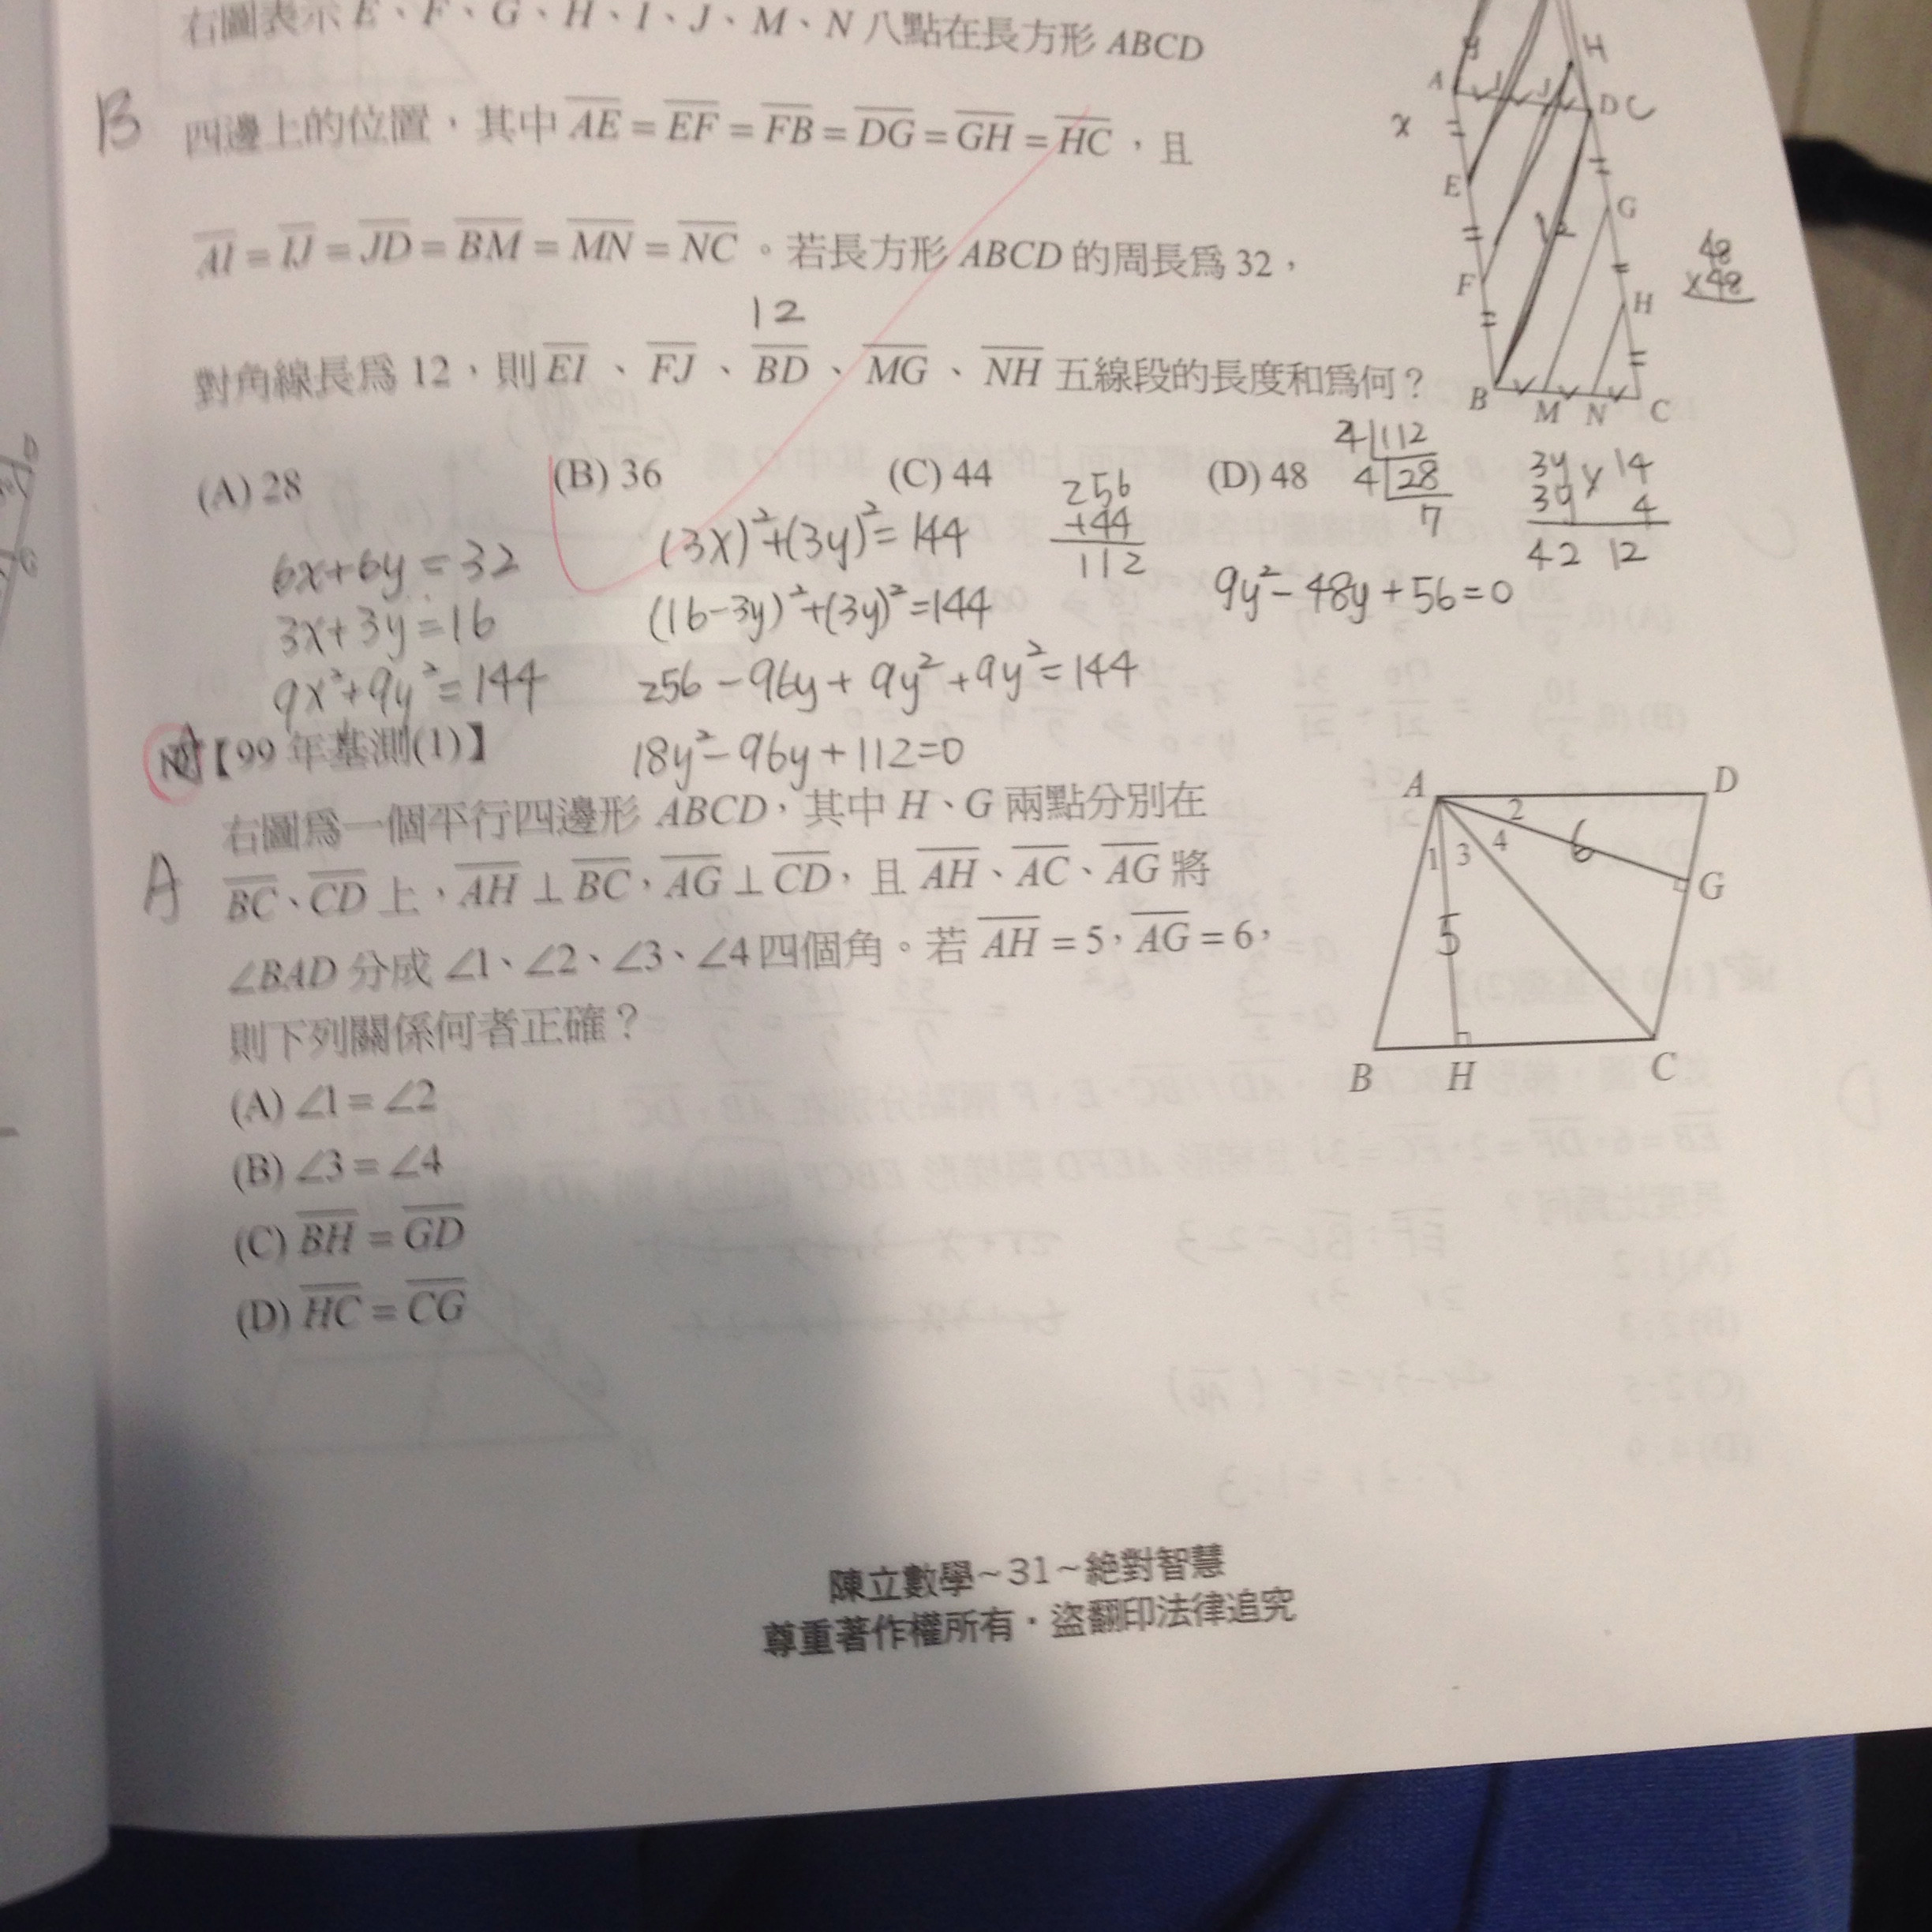 右圖表示 E、F、G、H、I、J、M、N 八點在長方形 ABCD
B
四邊上的位置，其中 AE = EF = FB = DG = GH = HC，且
AI = IJ = JD = BM = MN = NC。若長方形 ABCD 的周長為 32，
12
對角線長為 12，則 EI、FJ、BD、MG、NH 五線段的長度和為何？
H
A
D C
x
E
G
12
F
H
B M N C
48
×48
(A) 28 (B) 36 (C) 44 (D) 48
6x+6y=32
3x+3y=16
9x²+9y²=144
(3x)²+(3y)²=144
(16-3y)²+(3y)²=144
256-96y+9y²+9y²=144
18y²-96y+112=0
256
+44
112
4 112
4 28
7
9y²-48y+56=0
3y 14
3y 4
42 12
【99 年基測(1)】
右圖為一個平行四邊形 ABCD，其中 H、G 兩點分別在
A
BC、CD 上，AH⊥BC，AG⊥CD，且 AH、AC、AG 將
∠BAD 分成 ∠1、∠2、∠3、∠4 四個角。若 AH = 5，AG = 6，
則下列關係何者正確？
(A) ∠1 = ∠2
(B) ∠3 = ∠4
(C) BH = GD
(D) HC = CG
A D
2
1 3 4 6
G
5
B H C
陳立數學~31~絕對智慧
尊重著作權所有．盜翻印法律追究